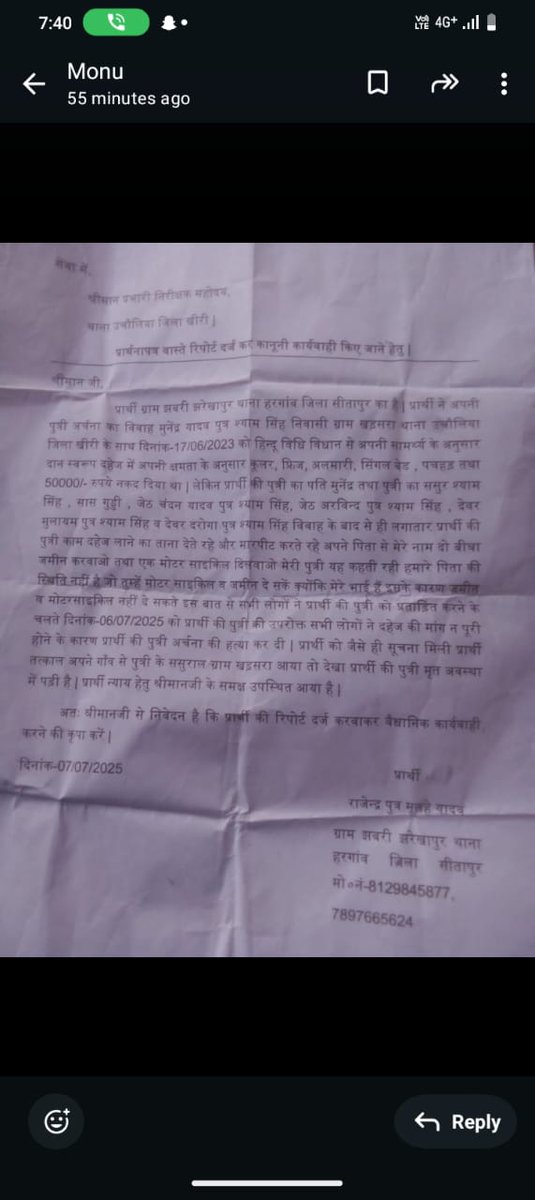 7:40
Vo)) LTE 4G+
Monu
55 minutes ago
सेवा में,
श्रीमान प्रभारी निरीक्षक महोदय,
थाना उचौलिया जिला खीरी |
प्रार्थनापत्र वास्ते रिपोर्ट दर्ज कर कानूनी कार्यवाही किए जाने हेतु |
श्रीमान जी,
प्रार्थी ग्राम झबरी झरेखापुर थाना हरगांव जिला सीतापुर का है | प्रार्थी ने अपनी
पुत्री अर्चना का विवाह मुनेंद्र यादव पुत्र श्याम सिंह निवासी ग्राम खड़सरा थाना उचौलिया
जिला खीरी के साथ दिनांक-17/06/2023 को हिन्दू विधि विधान से अपनी सामर्थ्य के अनुसार
दान स्वरुप दहेज में अपनी क्षमता के अनुसार कूलर, फ्रिज, अलमारी, सिंगल बेड , पचहड़ तथा
50000/- रुपये नकद दिया था | लेकिन प्रार्थी की पुत्री का पति मुनेंद्र तथा पुत्री का ससुर श्याम
सिंह , सास गुड्डी , जेठ चंदन यादव पुत्र श्याम सिंह, जेठ अरविन्द पुत्र श्याम सिंह , देवर
मुलायम पुत्र श्याम सिंह व देवर दरोगा पुत्र श्याम सिंह विवाह के बाद से ही लगातार प्रार्थी की
पुत्री काम दहेज लाने का ताना देते रहे और मारपीट करते रहे अपने पिता से मेरे नाम दो बीघा
जमीन करवाओ तथा एक मोटर साइकिल दिलवाओ मेरी पुत्री यह कहती रही हमारे पिता की
स्थिति नहीं है जो तुम्हें मोटर साइकिल व जमीन दे सकें क्योंकि मेरे भाई हैं इसके कारण जमीन
व मोटरसाइकिल नहीं दे सकते इस बात से सभी लोगों ने प्रार्थी की पुत्री को प्रताड़ित करने के
चलते दिनांक-06/07/2025 को प्रार्थी की पुत्री की उपरोक्त सभी लोगों ने दहेज की मांग न पूरी
होने के कारण प्रार्थी की पुत्री अर्चना की हत्या कर दी | प्रार्थी को जैसे ही सूचना मिली प्रार्थी
तत्काल अपने गाँव से पुत्री के ससुराल ग्राम खड़सरा आया तो देखा प्रार्थी की पुत्री मृत अवस्था
में पड़ी है | प्रार्थी न्याय हेतु श्रीमानजी के समक्ष उपस्थित आया है |
अतः श्रीमानजी से निवेदन है कि प्रार्थी की रिपोर्ट दर्ज करवाकर वैधानिक कार्यवाही
करने की कृपा करें |
दिनांक-07/07/2025
प्रार्थी
राजेन्द्र पुत्र यादव
ग्राम झबरी झरेखापुर थाना
हरगांव जिला सीतापुर
मो०नं-8129845877,
7897665624
Reply